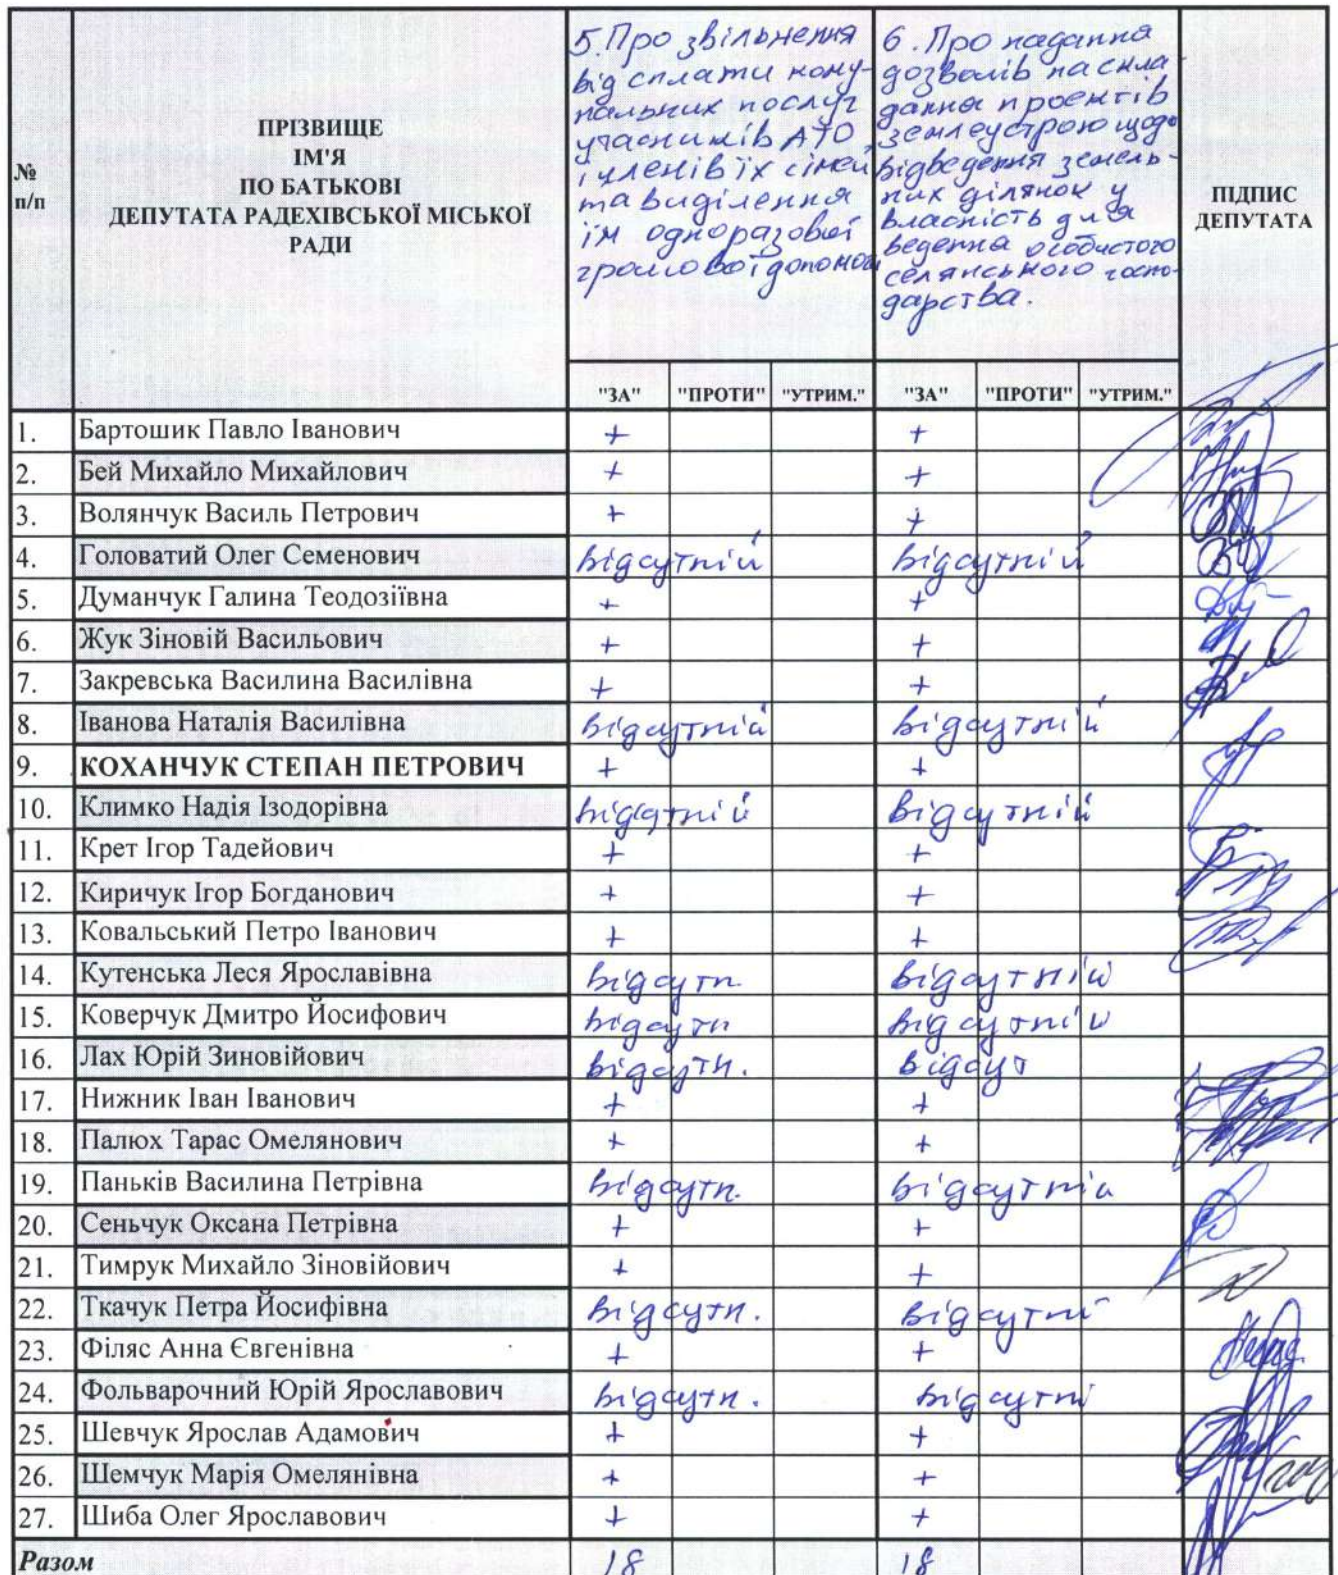 №
п/п
ПРІЗВИЩЕ
ІМ'Я
ПО БАТЬКОВІ
ДЕПУТАТА РАДЕХІВСЬКОЇ МІСЬКОЇ
РАДИ
5. Про звільнення
від сплати кому-
нальних послуг
учасників АТО
і членів їх сімей
та виділення
їм одноразової
грошової допомоги
6. Про надання
дозволів на скла-
дання проектів
землеустрою щодо
відведення земель-
них ділянок у
власність для
ведення особистого
селянського госпо-
дарства.
ПІДПИС
ДЕПУТАТА
"ЗА" "ПРОТИ" "УТРИМ." "ЗА" "ПРОТИ" "УТРИМ."
1. Бартошик Павло Іванович + +
2. Бей Михайло Михайлович + +
3. Волянчук Василь Петрович + +
4. Головатий Олег Семенович відсутній відсутній
5. Думанчук Галина Теодозіївна + +
6. Жук Зіновій Васильович + +
7. Закревська Василина Василівна + +
8. Іванова Наталія Василівна відсутній відсутній
9. КОХАНЧУК СТЕПАН ПЕТРОВИЧ + +
10. Климко Надія Ізодорівна відсутній відсутній
11. Крет Ігор Тадейович + +
12. Киричук Ігор Богданович + +
13. Ковальський Петро Іванович + +
14. Кутенська Леся Ярославівна відсутн відсутній
15. Коверчук Дмитро Йосифович відсутн відсутній
16. Лах Юрій Зиновійович відсутн. відсут
17. Нижник Іван Іванович + +
18. Палюх Тарас Омелянович + +
19. Паньків Василина Петрівна відсутн. відсутній
20. Сеньчук Оксана Петрівна + +
21. Тимрук Михайло Зіновійович + +
22. Ткачук Петра Йосифівна відсутн. відсутні
23. Філяс Анна Євгенівна + +
24. Фольварочний Юрій Ярославович відсутн. відсутні
25. Шевчук Ярослав Адамович + +
26. Шемчук Марія Омелянівна + +
27. Шиба Олег Ярославович + +
Разом 18 18